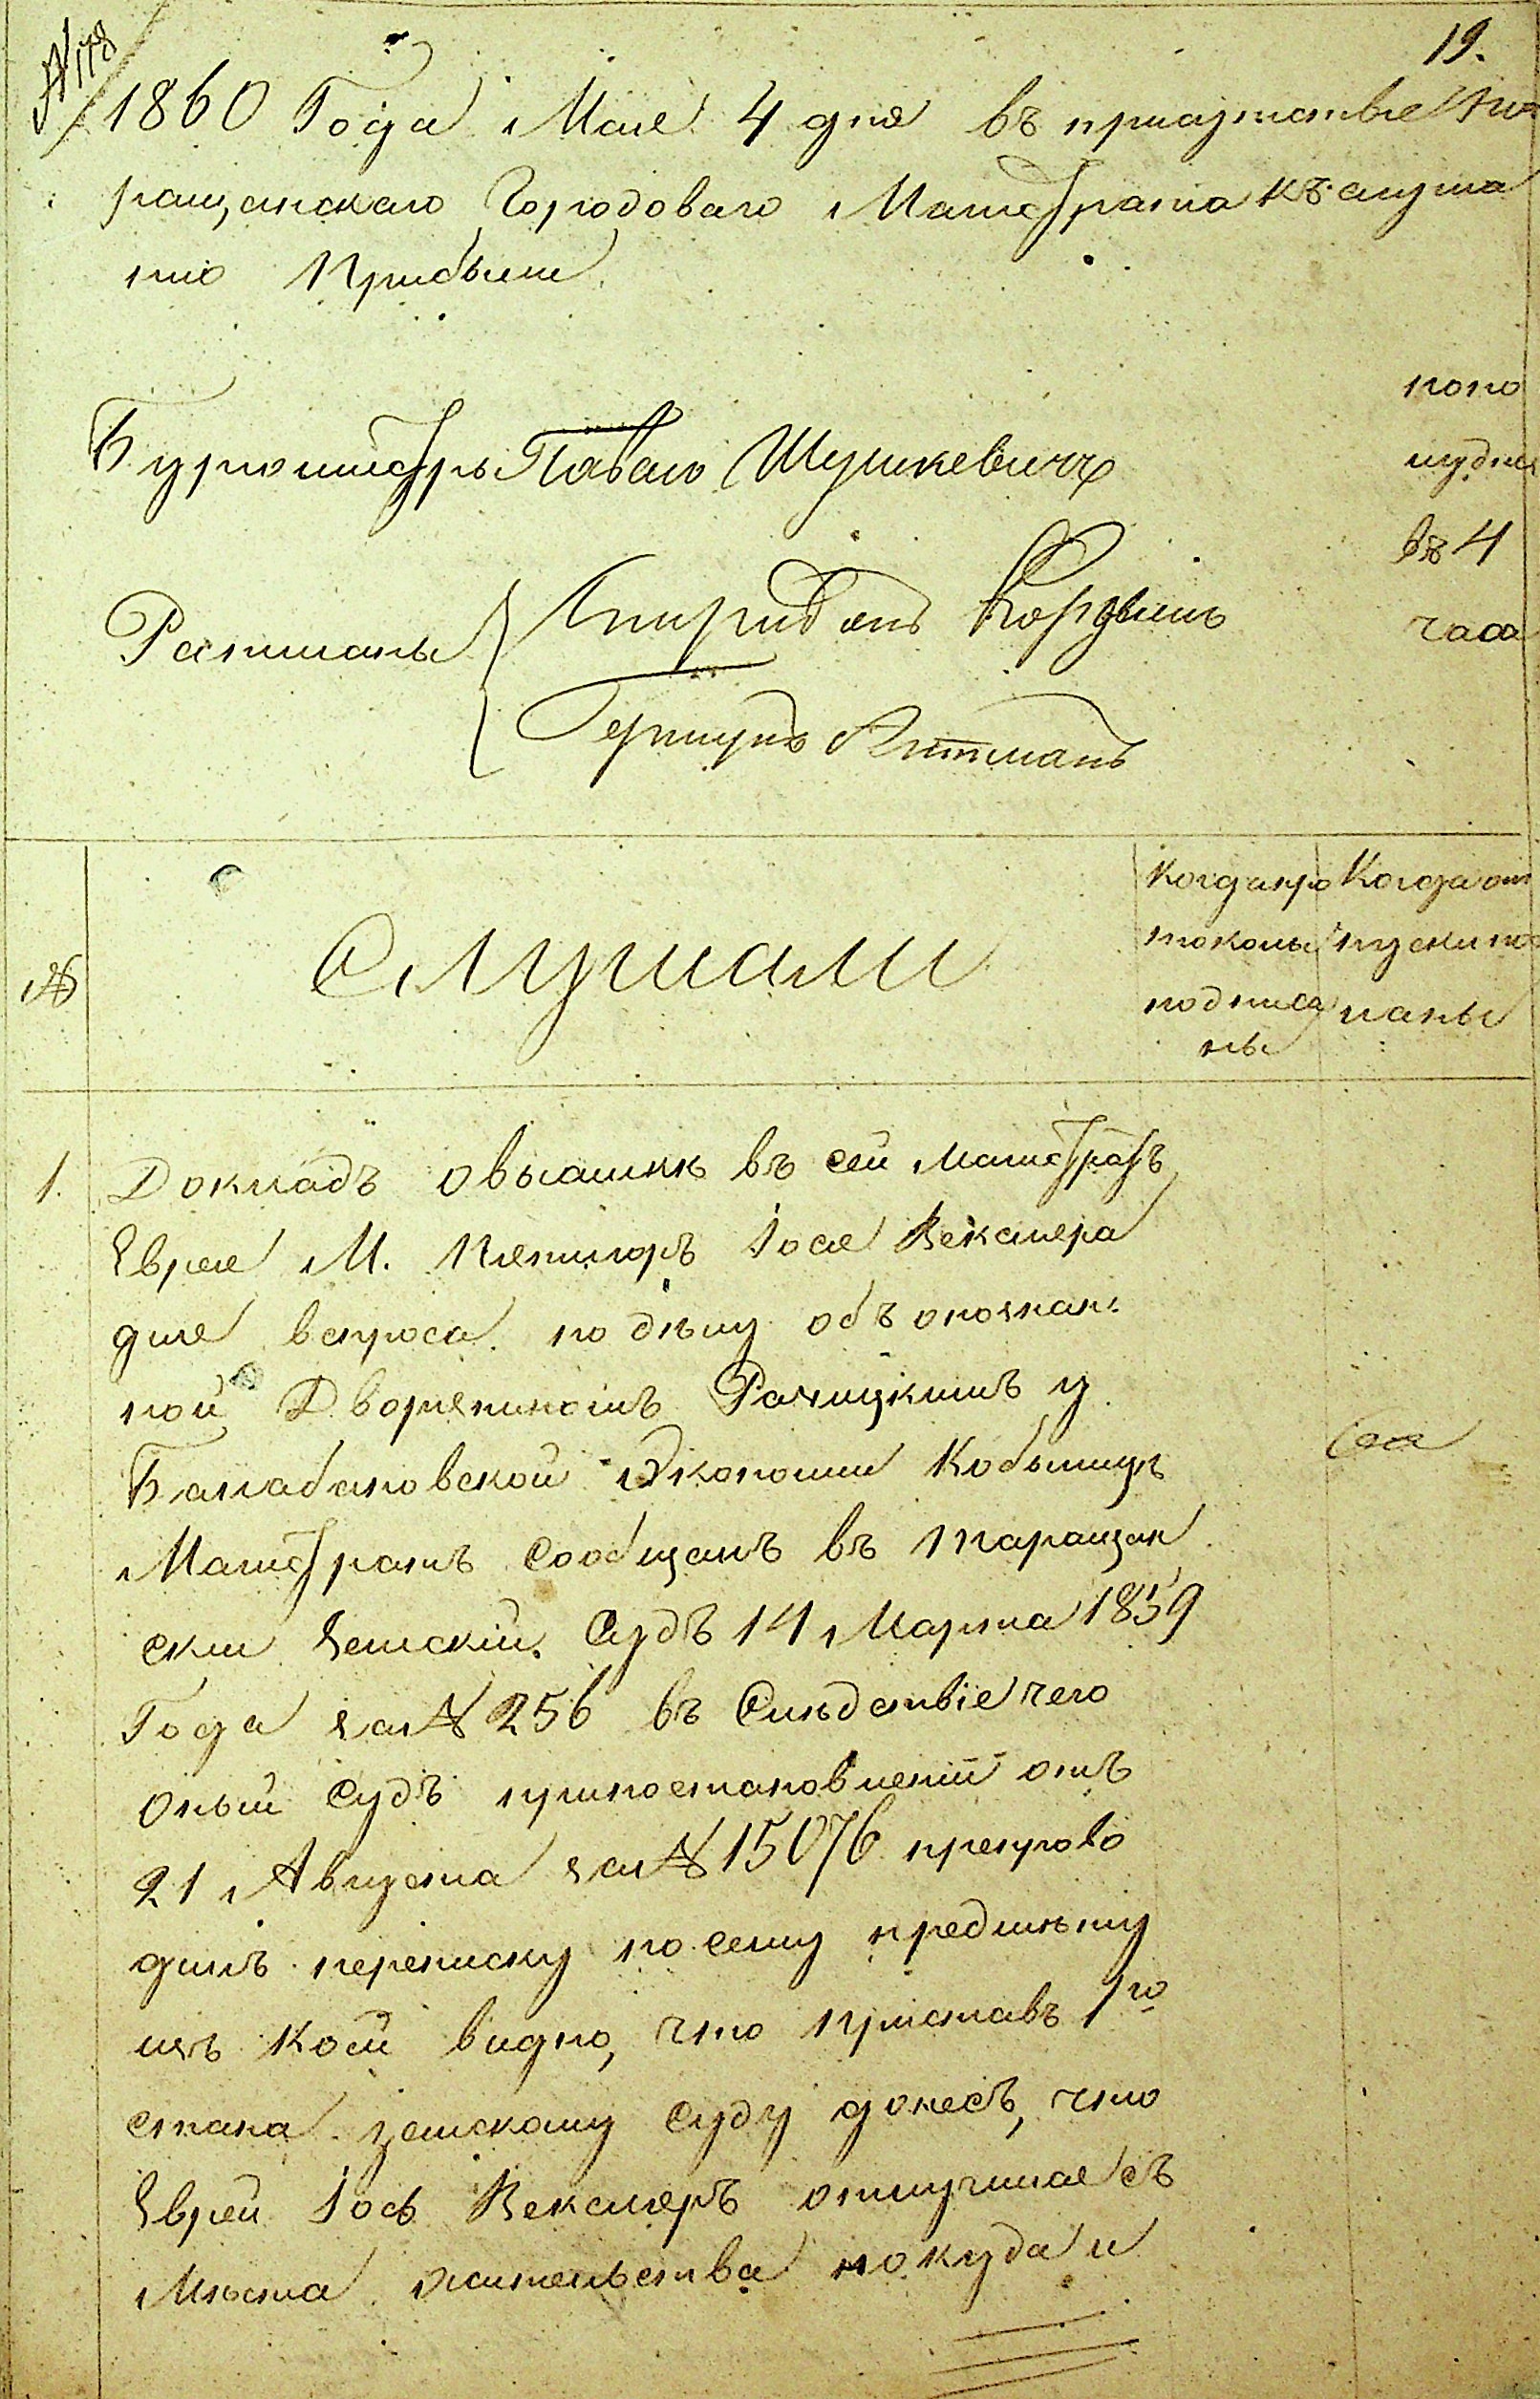 № 178
19.
1860 Года Мая 4 дня въ присутствіе Та
ращанскаго Городоваго Магистрата къ слуша
нію Прибыли
Бургомистръ Павелъ Шушкевичъ
Ратманы
Спиридонъ
Ратманъ
попо
лудни
въ 4
часа
№
Слушали
Когда про
токолы
подписа
ны
Когда от
пуски по
1. Докладъ о высылкѣ въ сей Магистратъ
Еврея М. Пятигоръ Іося Векслера
для вспроса по дѣлу объ опочкан
ной Дворяниномъ Рачицкимъ у
Балабановской Экономіи Кобылицѣ
Магистратъ сообщалъ въ Таращан
скій Земскій Судъ 14 Марта 1859
Года за № 256 въ Слѣдствіе чего
оный Судъ припостановленіи отъ
21 Августа за № 15076 препрово
дилъ переписку по сему предмѣту
изъ коей видно, что приставъ 1го
стана земскому суду донесъ, что
Еврей Іось Векслеръ отлучился съ
Мѣста жительства покуда и